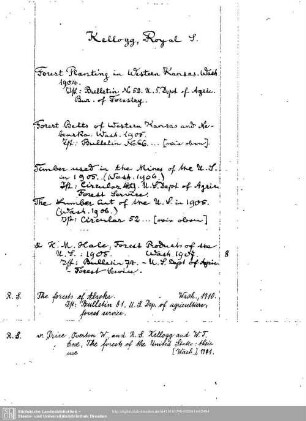 Kellogg, Royal S.
Forest Planting in Western Kansas. Wash.
1904.
Bulletin No 52. U.S. Dept of Agric.
Bur. of Forestry.
Forest Belts of Western Kansas and Ne-
braska. Wash. 1905.
Bulletin No 66 ... [wie oben]
Timber used in the Mines of the U.S.
in 1905. (Wash. 1906.)
Circular U.S. Dept of Agric.
Forest Service.
The Lumber Cut of the U.S. in 1905.
(Wash. 1906.)
Circular 52 ... [wie oben]
& H. M. Hale, Forest Products of the
U.S.: 1905. Wash. 1907.
Bulletin 74. - U.S. Dept of Agric.
Forest Service.
8
R.S. The forests of Alaska. Wash., 1910.
Bulletin 81, U.S. Dep. of agriculture,
forest service.
R.S. Price, Overton W., and R.S. Kellogg and W.T.
Cox, The forests of the United States: their
use [Wash.]